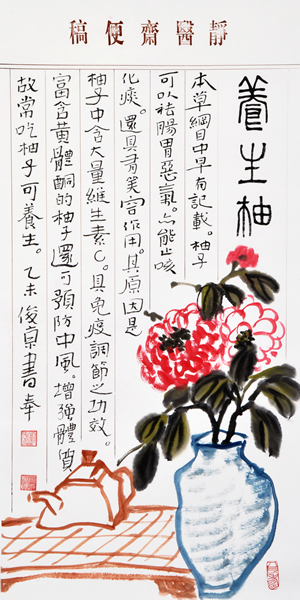 靜醫齋便稿
養生柚
本草綱目中早有記載。柚子
可以祛腸胃惡氣。亦能止咳
化痰。還具有美容作用。其原因是
柚子中含大量維生素C。具免疫調節之功效。
富含黃體酮的柚子還可預防中風。增強體質
故常吃柚子可養生。乙未俊京書奉